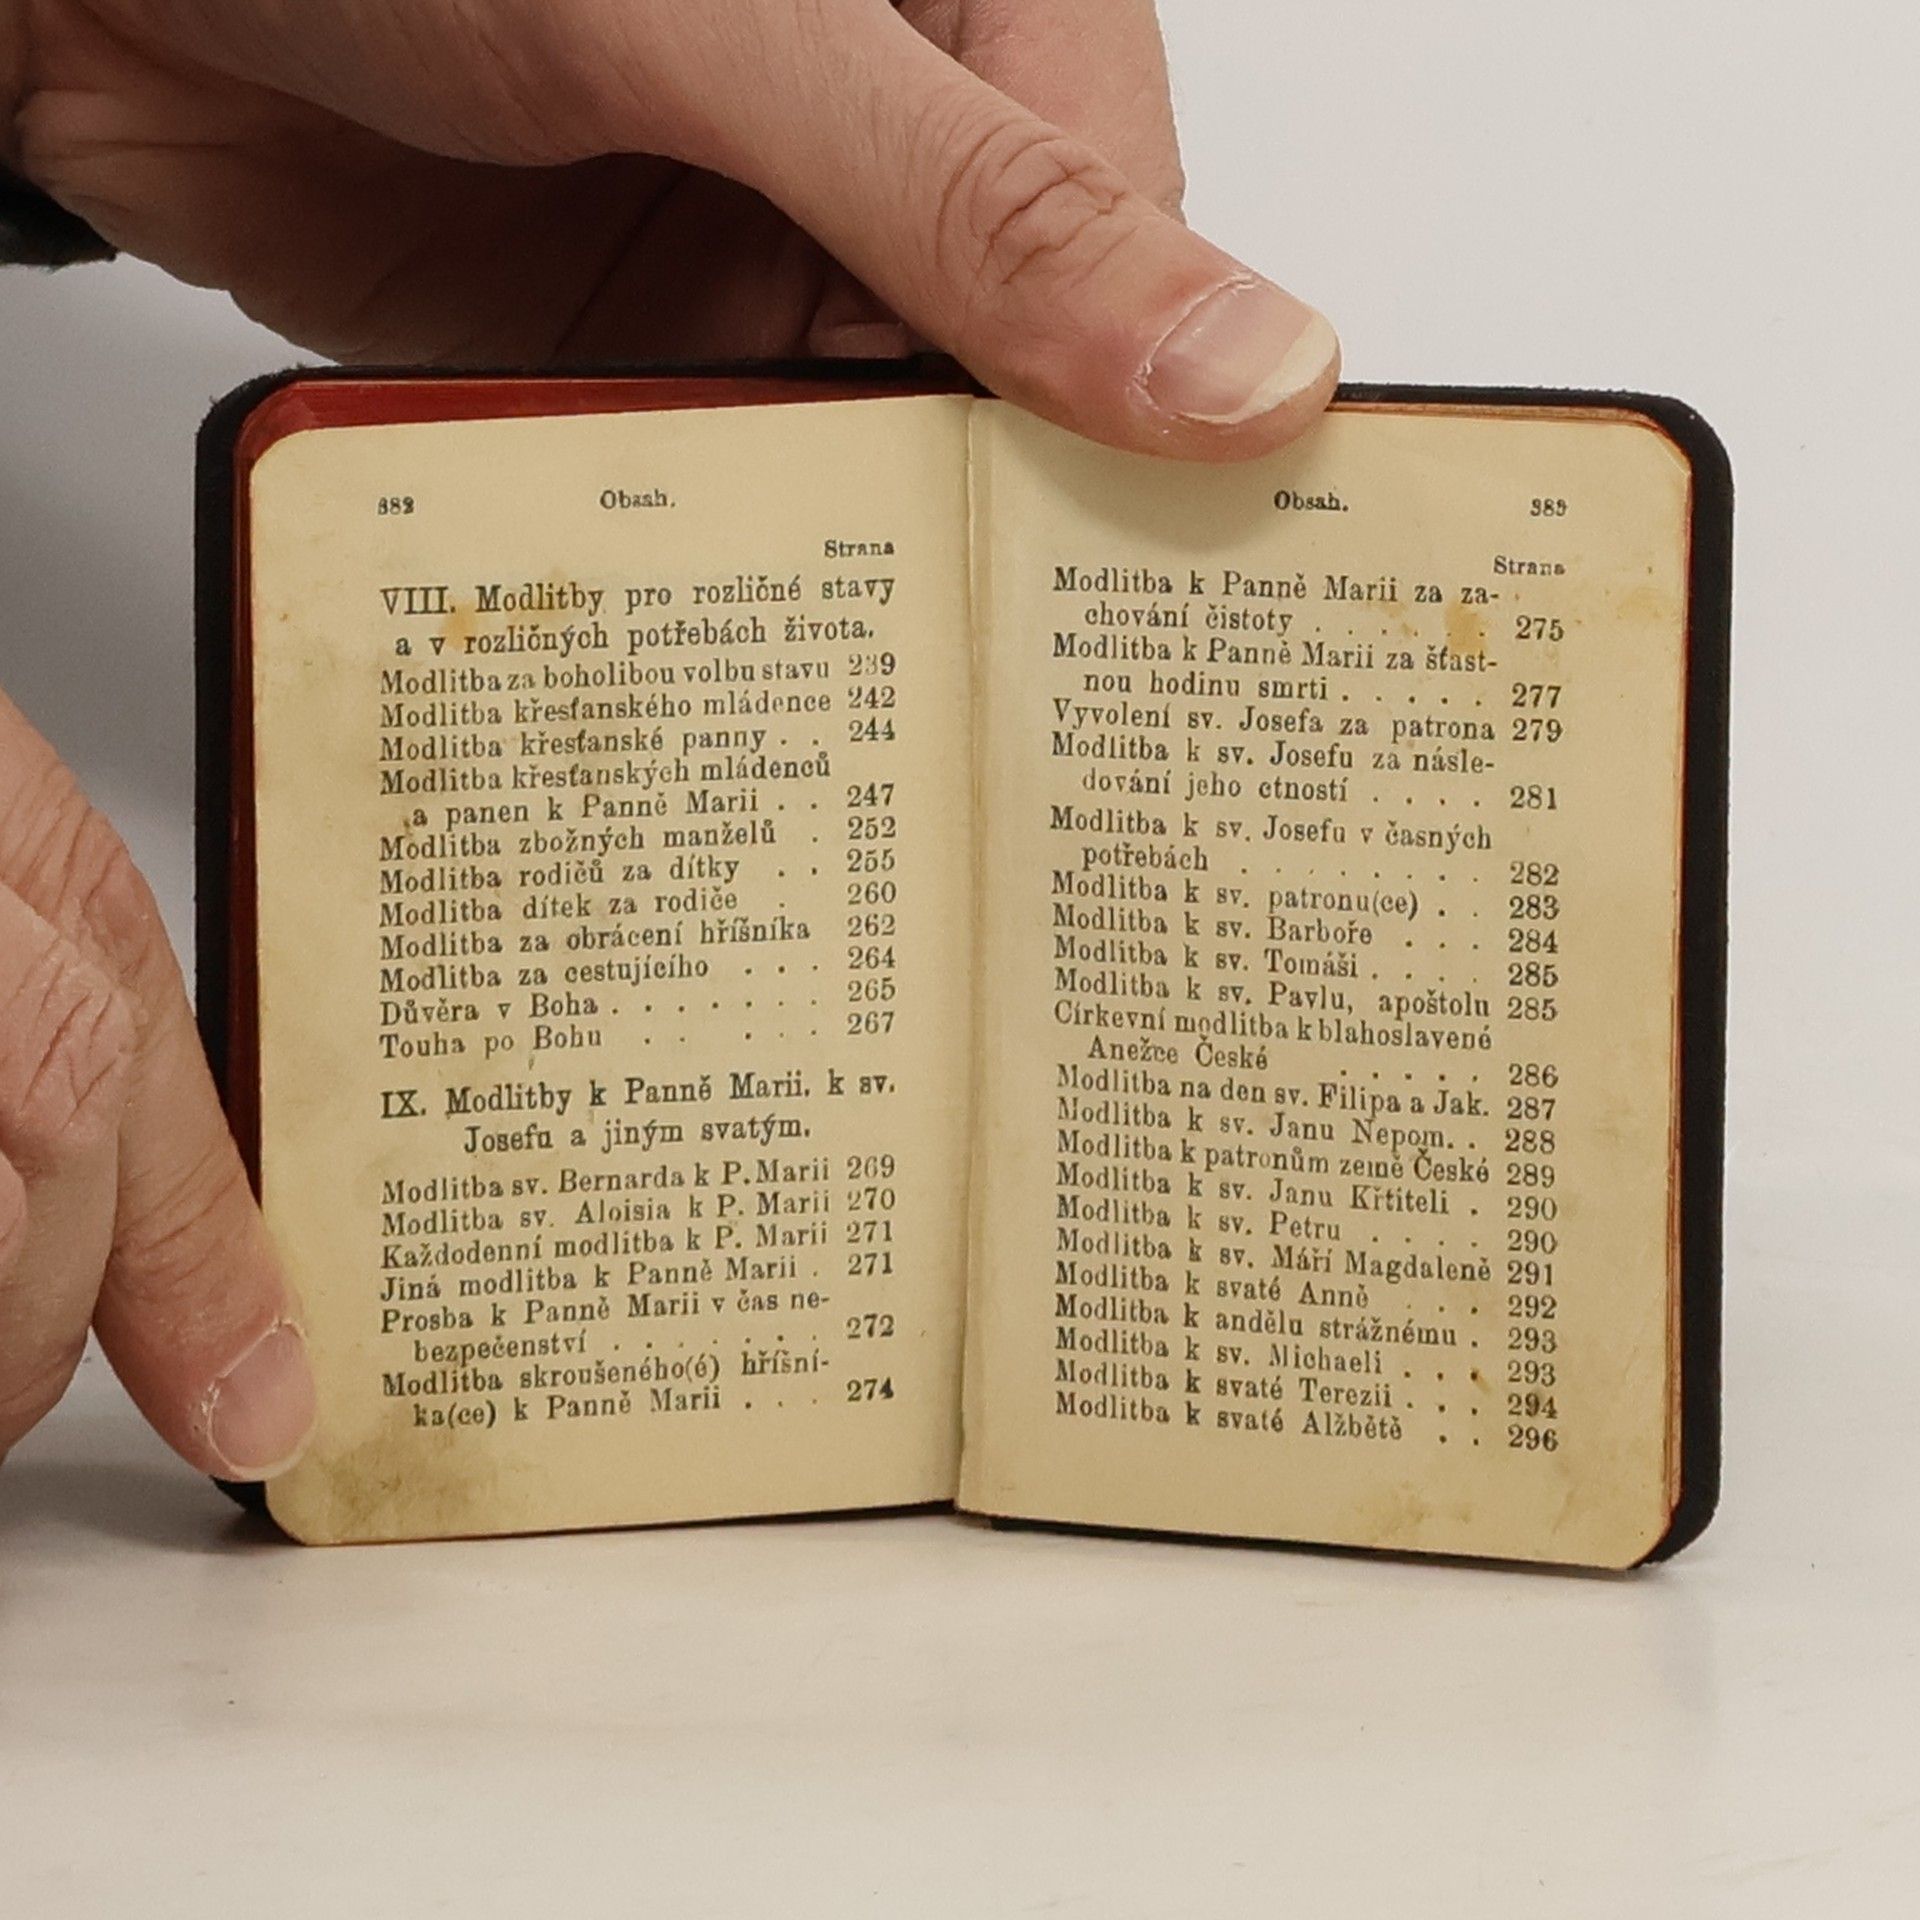 382
Obsah.
Strana
VIII. Modlitby pro rozličné stavy
a v rozličných potřebách života.
Modlitba za boholibou volbu stavu 239
Modlitba křesťanského mládence 242
Modlitba křesťanské panny . . 244
Modlitba křesťanských mládenců
a panen k Panně Marii . . 247
Modlitba zbožných manželů . 252
Modlitba rodičů za dítky . . 255
Modlitba dítek za rodiče . 260
Modlitba za obrácení hříšníka 262
Modlitba za cestujícího . . . 264
Důvěra v Boha . . . . . . . 265
Touha po Bohu . . . . . 267
IX. Modlitby k Panně Marii, k sv.
Josefu a jiným svatým.
Modlitba sv. Bernarda k P. Marii 269
Modlitba sv. Aloisia k P. Marii 270
Každodenní modlitba k P. Marii 271
Jiná modlitba k Panně Marii . 271
Prosba k Panně Marii v čas ne-
bezpečenství . . . . . . . 272
Modlitba skroušeného(é) hříšní-
ka(ce) k Panně Marii . . . 274
Obsah.
383
Strana
Modlitba k Panně Marii za za-
chování čistoty . . . . . . 275
Modlitba k Panně Marii za šťast-
nou hodinu smrti . . . . . 277
Vyvolení sv. Josefa za patrona 279
Modlitba k sv. Josefu za násle-
dování jeho ctností . . . . 281
Modlitba k sv. Josefu v časných
potřebách . . . . . . . . 282
Modlitba k sv. patronu(ce) . . 283
Modlitba k sv. Barboře . . . 284
Modlitba k sv. Tomáši . . . . 285
Modlitba k sv. Pavlu, apoštolu 285
Církevní modlitba k blahoslavené
Anežce České . . . . . 286
Modlitba na den sv. Filipa a Jak. 287
Modlitba k sv. Janu Nepom. . 288
Modlitba k patronům země České 289
Modlitba k sv. Janu Křtiteli . 290
Modlitba k sv. Petru . . . . 290
Modlitba k sv. Máří Magdaleně 291
Modlitba k svaté Anně . . . 292
Modlitba k andělu strážnému . 293
Modlitba k sv. Michaeli . . . 293
Modlitba k svaté Terezii . . . 294
Modlitba k svaté Alžbětě . . 296